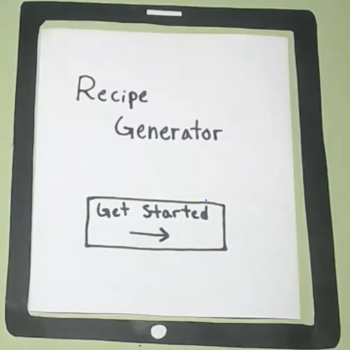 Recipe
Generator
Get Started
→